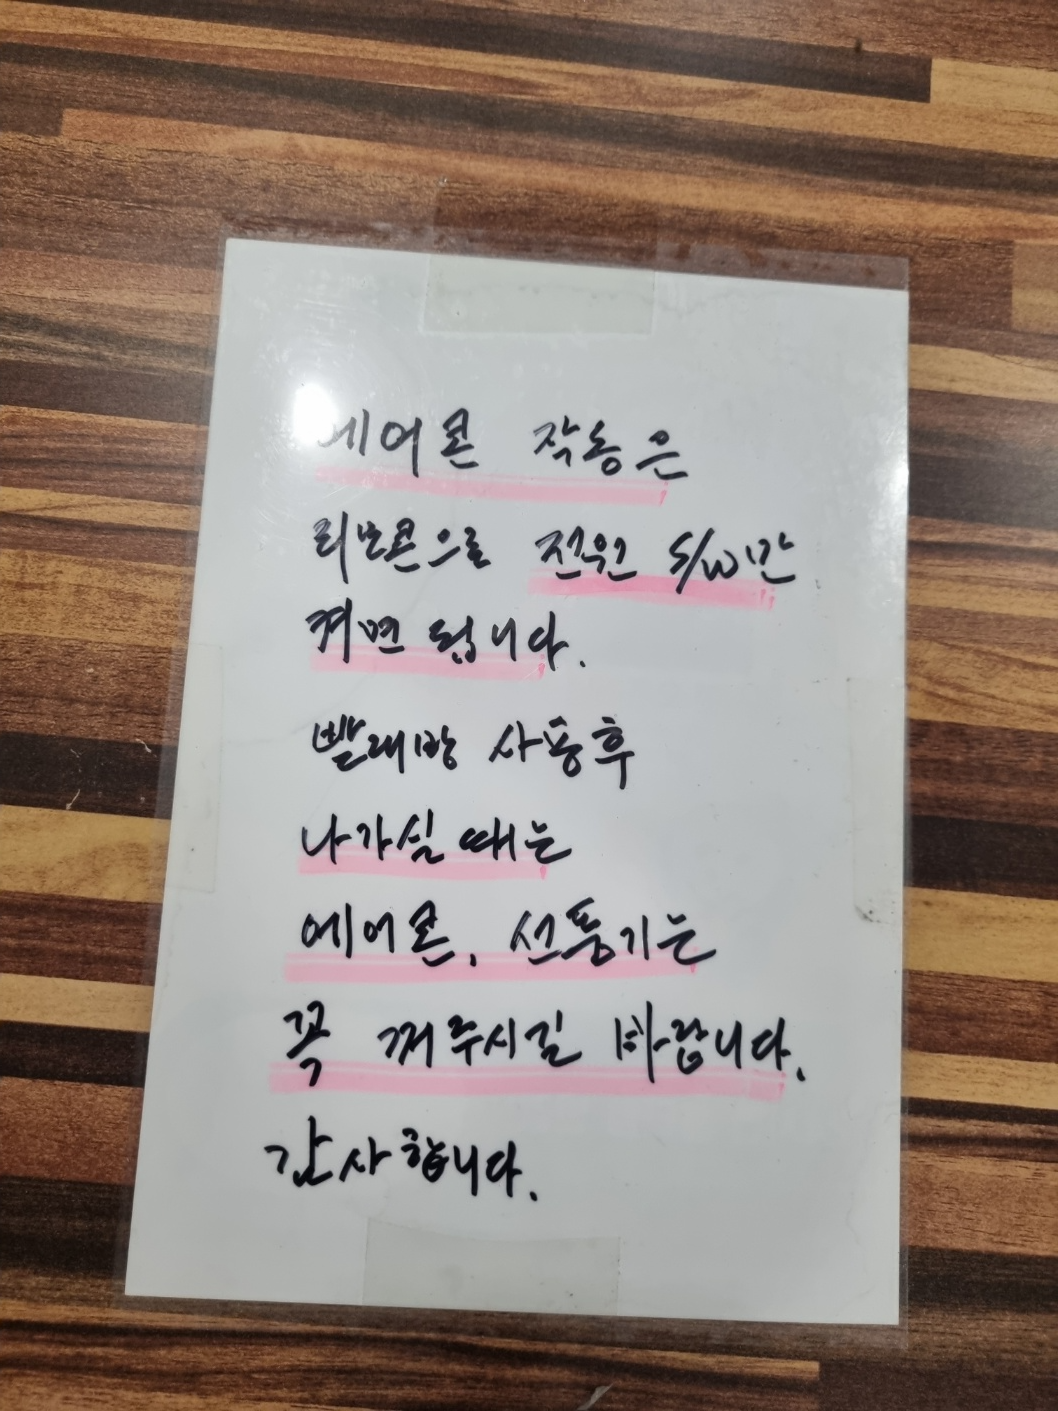 에어콘 작동은
리모콘으로 전원 S/W만
켜면 됩니다.
빨래방 사용후
나가실 때는
에어콘, 선풍기는
꼭 꺼주시길 바랍니다.
감사합니다.